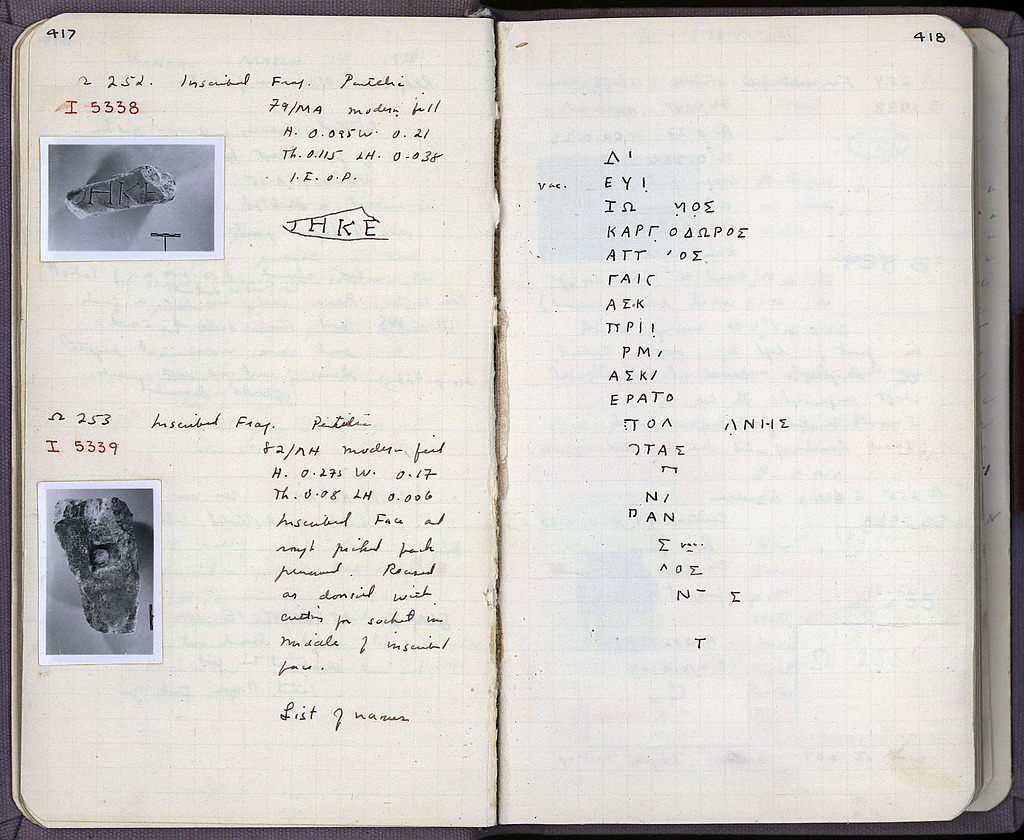 417
Ω 252. Inscribed Frag. Pentelic
I 5338
79/MA modern fill
H. 0.095 W. 0.21
Th. 0.115 LH. 0.038
I.E.O.P.
ΗΚΕ
Ω 253 Inscribed Frag. Pentelic
I 5339
82/ΛH modern fill
H. 0.275 W. 0.17
Th. 0.08 LH 0.006
Inscribed Face and
rough picked back
preserved. Reused
as doorsill with
cutting for socket in
middle of inscribed
face.
List of names
418
Δ Ι
vac. ΕΥΙ
ΙΩ ΜΟΣ
ΚΑΡΓ ΟΔΩΡΟΣ
ΑΓΓ ΟΣ
ΓΑΙΣ
ΑΣΚ
ΠΡΙΙ
ΡΜ
ΑΣΚ
ΕΡΑΤΟ
ΠΟΛ ΛΝΗΣ
ΟΤΑΣ
Π
ΝΙ
ΠΑΝ
Σ vac.
ΛΟΣ
Ν Σ
Τ